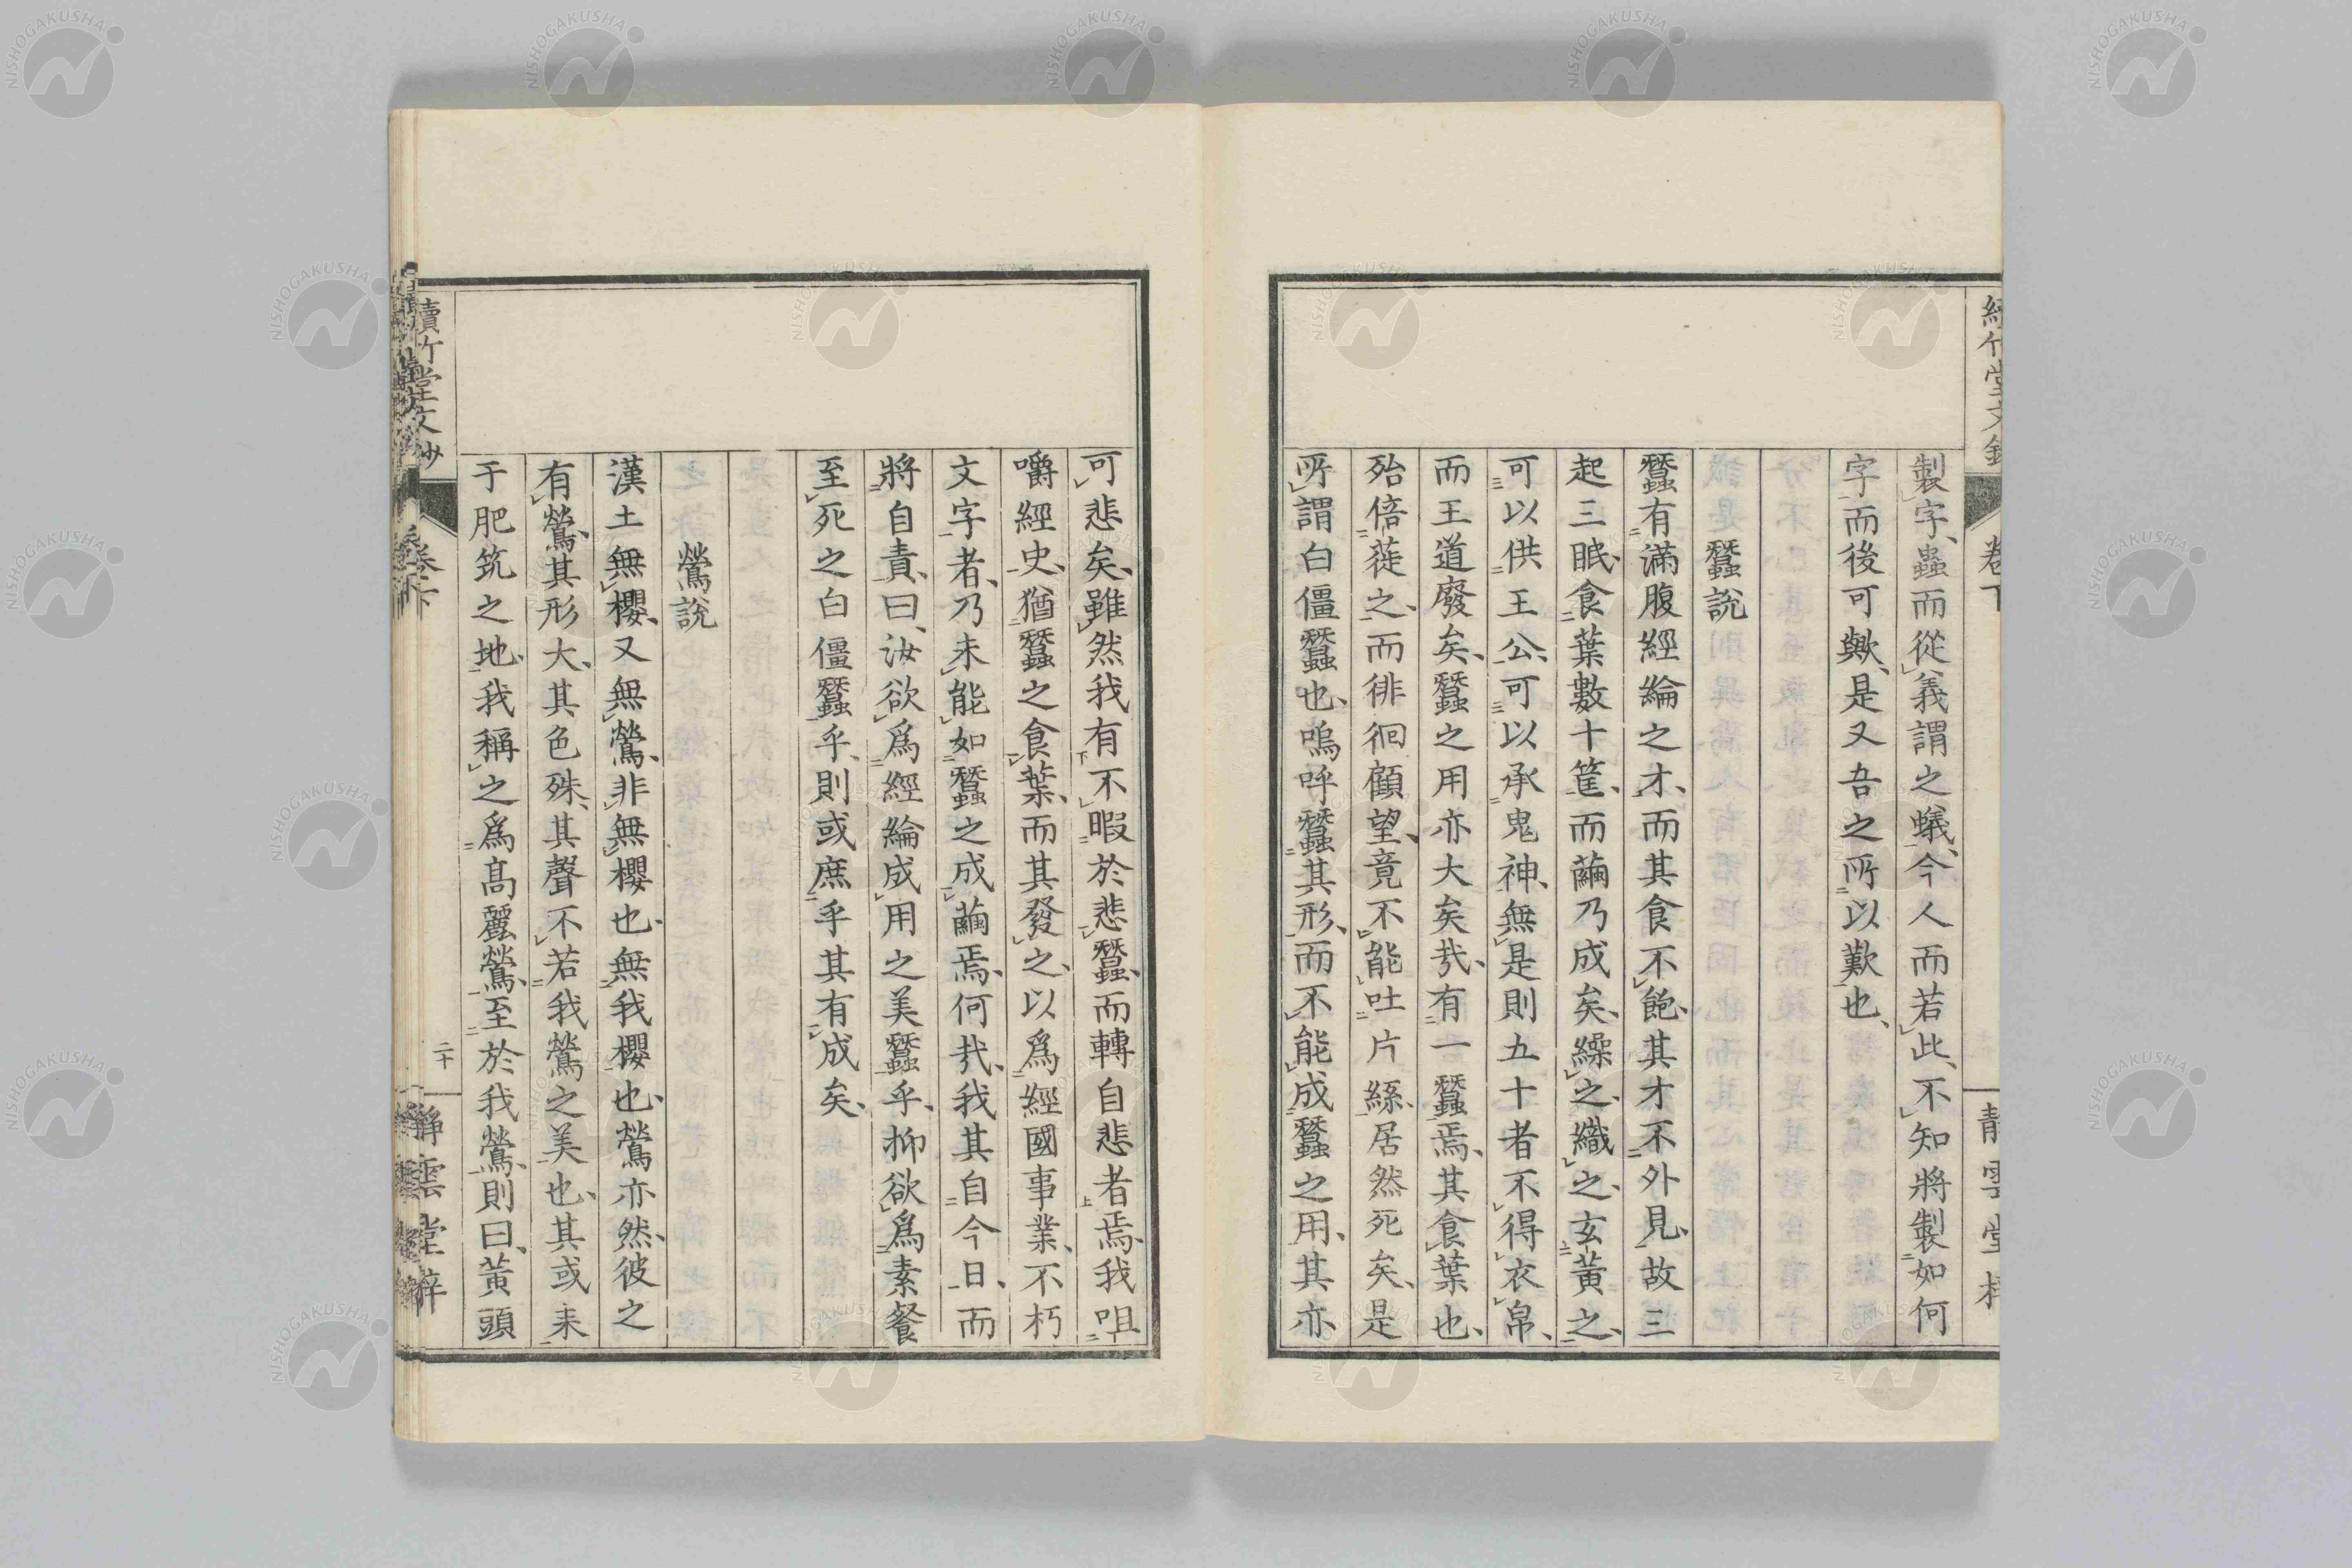 製字、蟲而從義謂之蟻、今人而若此、不知將製如何
字而後可歟、是又吾之所以歎也、
蠶說
蠶有滿腹經綸之才、而其食不飽、其才不外見、故三
起三眠、食葉數十筐、而繭乃成矣、繰之、織之、玄黃之、
可以供王公、可以承鬼神、無是則五十者不得衣帛、
而王道廢矣、蠶之用亦大矣哉、有一蠶焉、其食葉也、
殆倍蓰之、而徘徊顧望、竟不能吐片絲、居然死矣、是
所謂白僵蠶也、嗚呼蠶其形、而不能成蠶之用、其亦
可悲矣、雖然我有不暇於悲蠶、而轉自悲者焉、我咀
嚼經史、猶蠶之食葉、而其發之、以爲經國事業、不朽
文字者、乃未能如蠶之成繭焉、何哉、我其自今日、而
將自責、曰、汝欲爲經綸成用之美蠶乎、抑欲爲素餐
至死之白僵蠶乎、則或庶乎其有成矣、
鶯說
漢土無櫻、又無鶯、非無櫻也、無我櫻也、鶯亦然、彼之
有鶯、其形大、其色殊、其聲不若我鶯之美也、其或来
于肥筑之地、我稱之爲高麗鶯、至於我鶯、則曰、黃頭
卷下
二十
靜雲堂梓